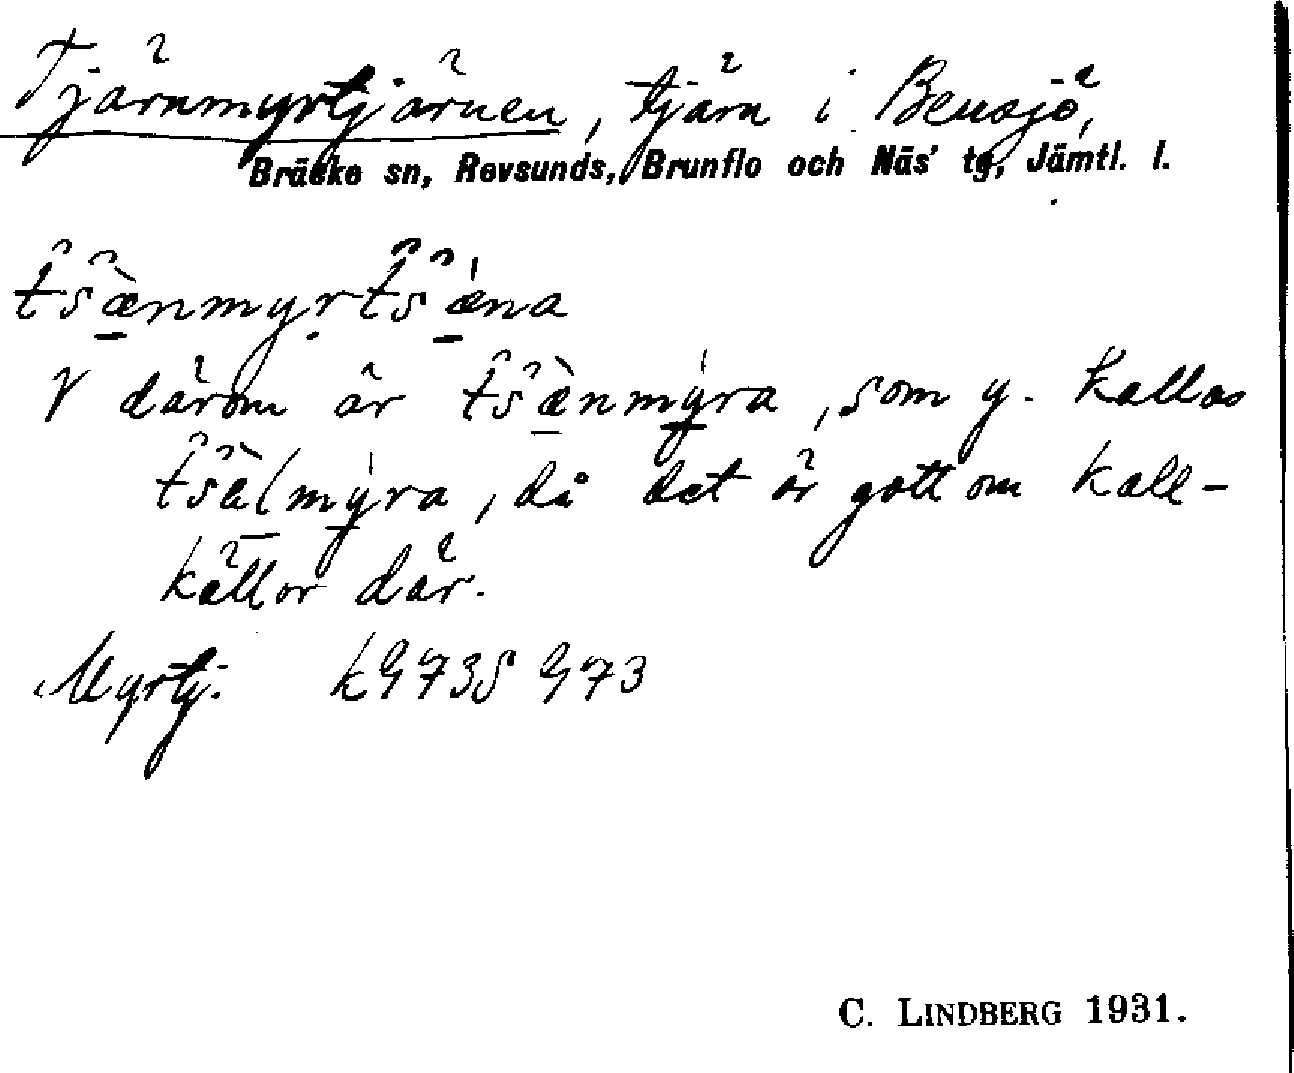 Tjärnmyrtjärnen, tjärn i Bensjö,
Bräcke sn, Revsunds, Brunflo och Näs' tg, Jämtl. l.
t̂ŝæ̀nmyrt̂ŝǽna
V därom är t̂ŝæ̀nmýra, som y. kallas
t̂ŝæ̀lmýra, då det är gott om kall-
källor där.
Myrtj. k9735 973
C. LINDBERG 1931.